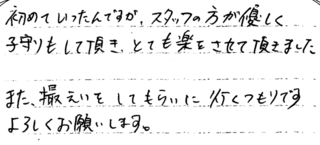 初めていったんですが、スタッフの方が優しく
子守りもして頂き、とても楽をさせて頂きました
また、撮えいをしてもらいに行くつもりです
よろしくお願いします。